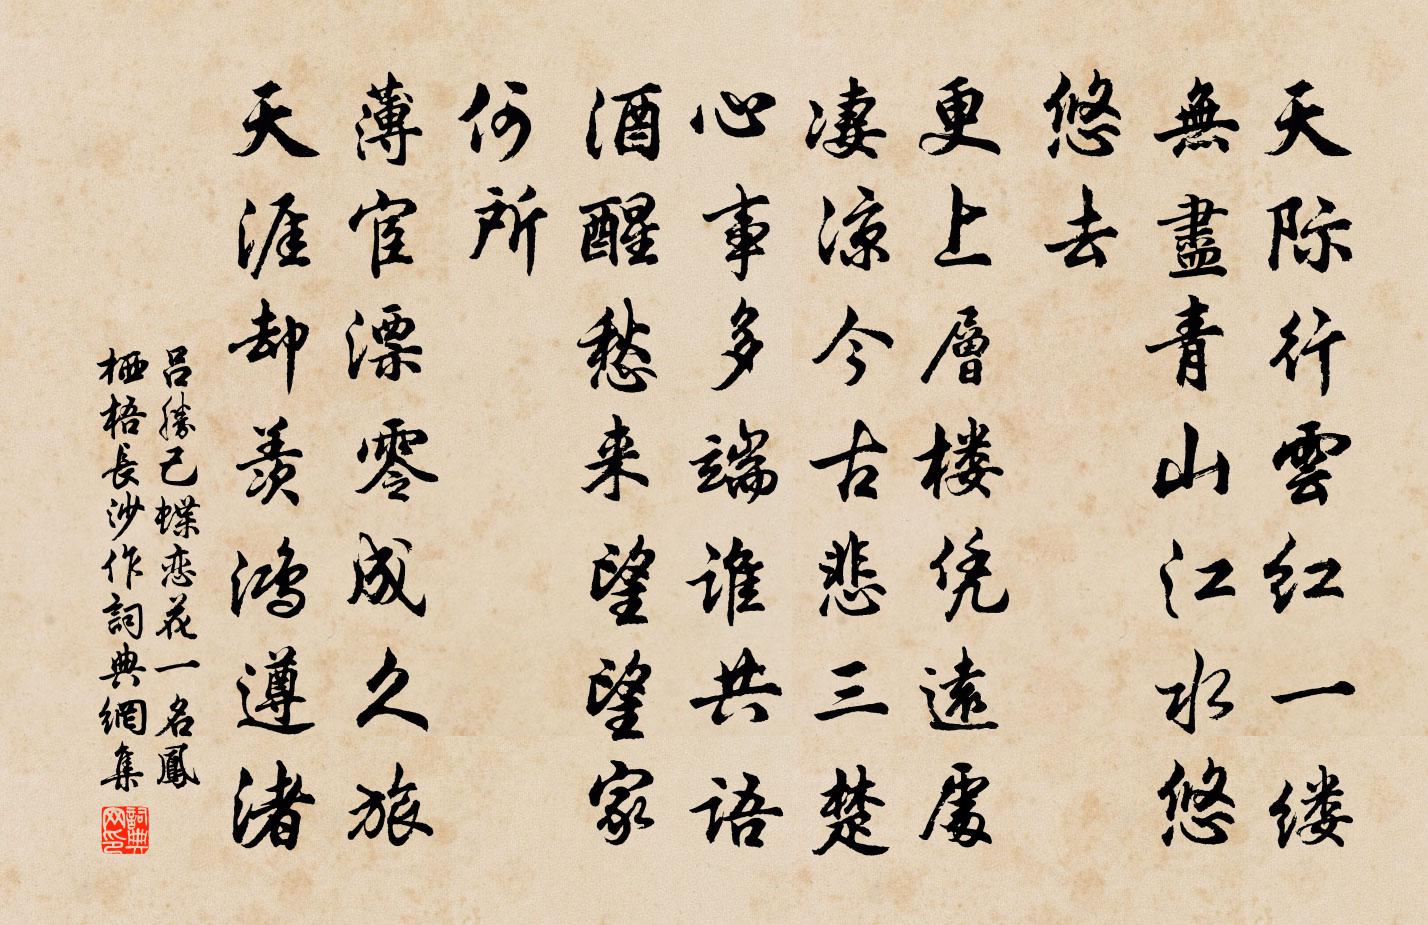 天际行雲红一缕
無盡青山江水悠
悠去
更上層楼凭遠處
凄凉今古悲三楚
心事多端谁共语
酒醒愁来望望家
何所
薄宦漂零成久旅
天涯却羡鸿遵渚
吕勝己蝶恋花一名鳳
栖梧長沙作詞典網集
詞典网印